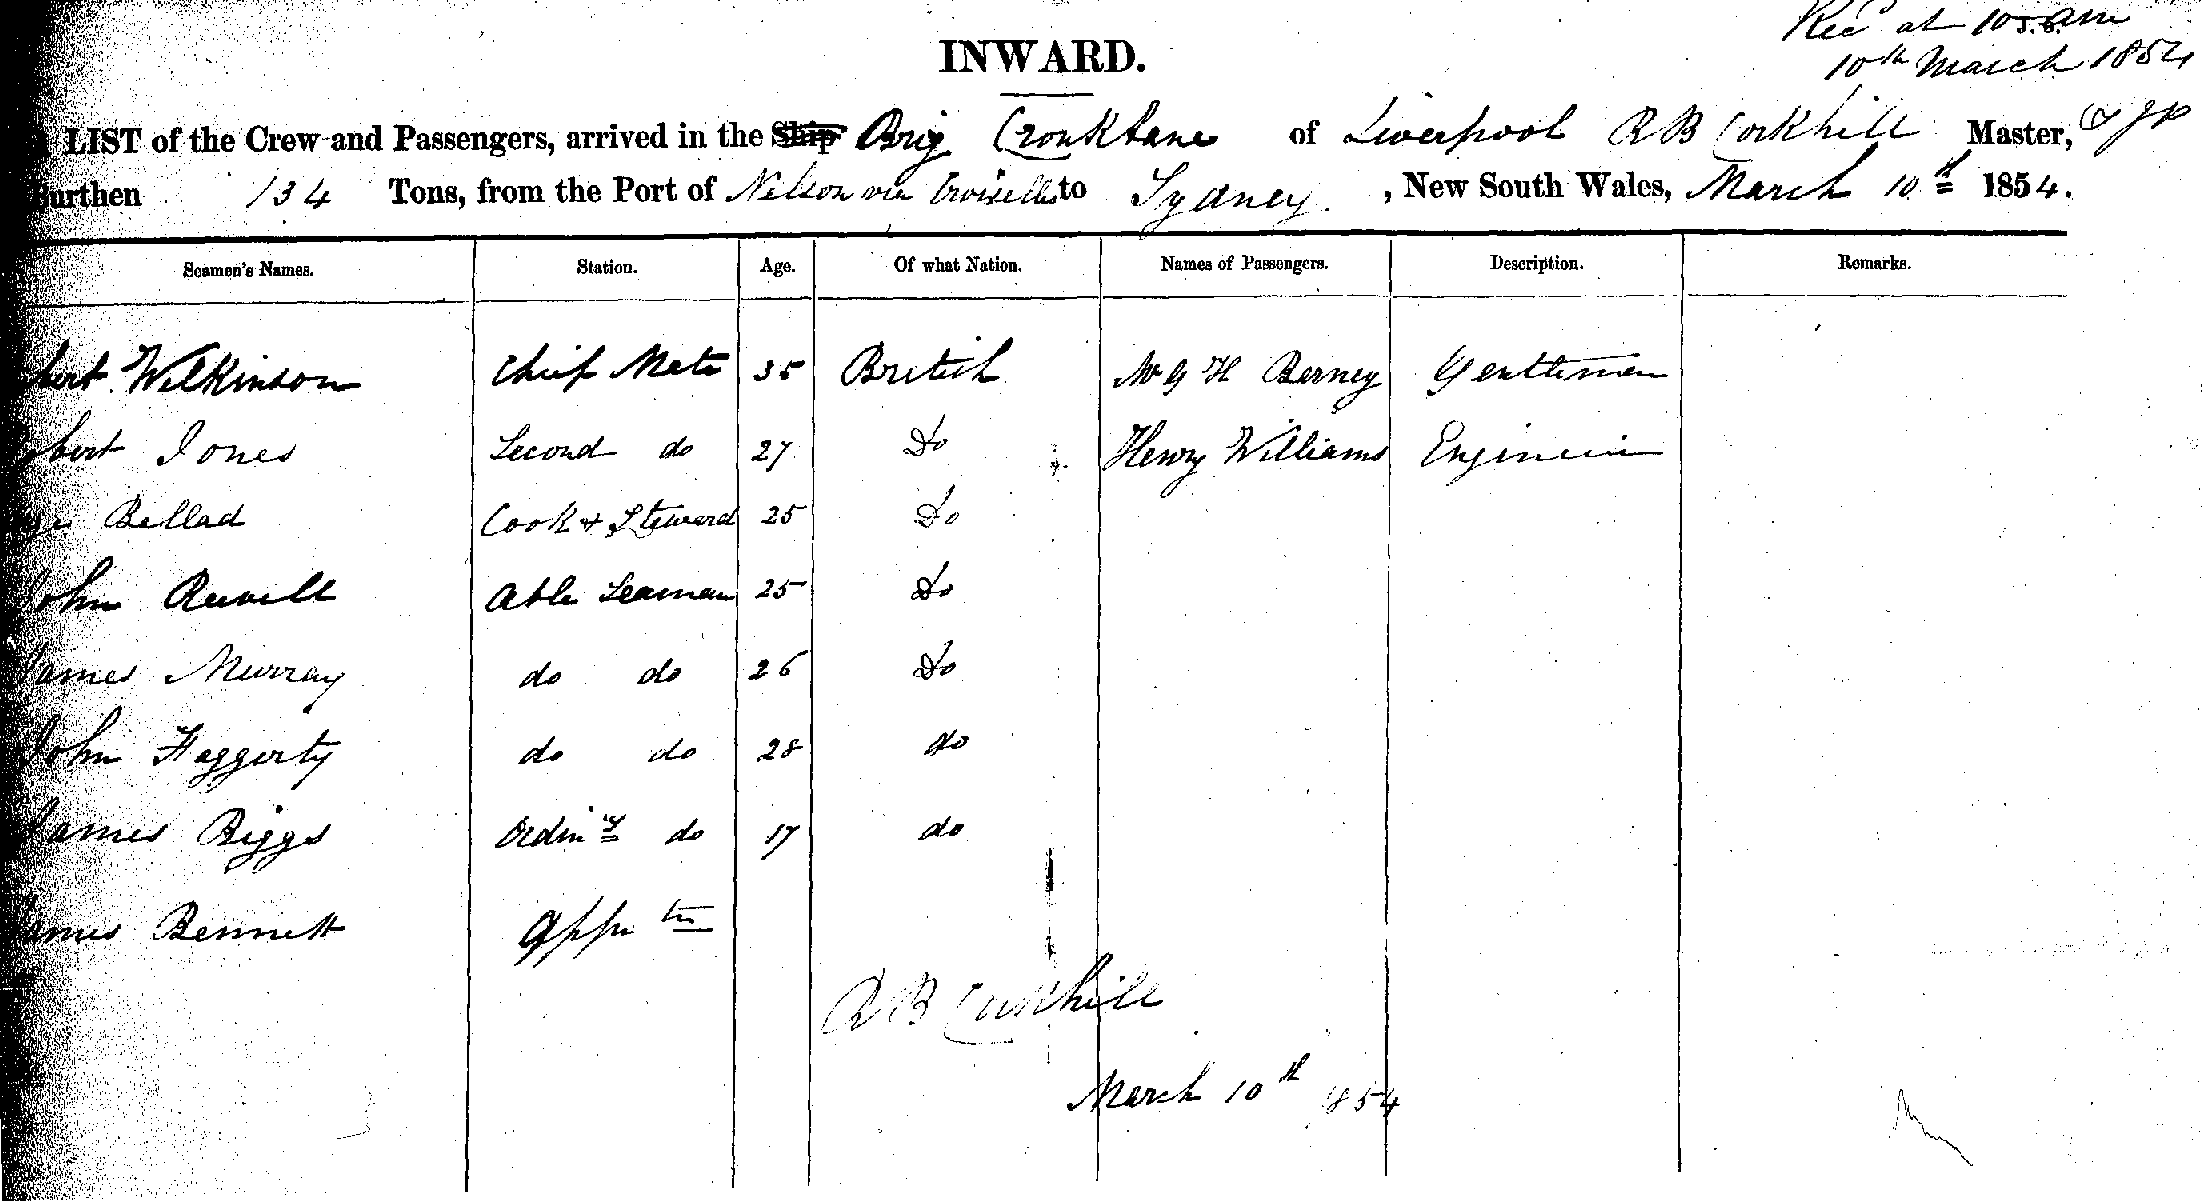 Recd at 10 am
10th March 1854
INWARD.
LIST of the Crew and Passengers, arrived in the Ship Brig Cronkbane of Liverpool R B Corkhill Master,
Burthen 134 Tons, from the Port of Nelson via to Sydney , New South Wales, March 10th 1854.
Seamen's Names. Station. Age. Of what Nation. Names of Passengers. Description. Remarks.
Wilkinson Chief Mate 35 British Mr G H Berney Gentleman
Robert Jones Second do 27 Do Henry Williams Engineer
Bellad Cook & Steward 25 Do
John Able Seaman 25 Do
James Murray do do 26 Do
John Haggerty do do 28 do
James Biggs Ordiny do 17 do
James Bennett
R B Corkhill
March 10th 1854